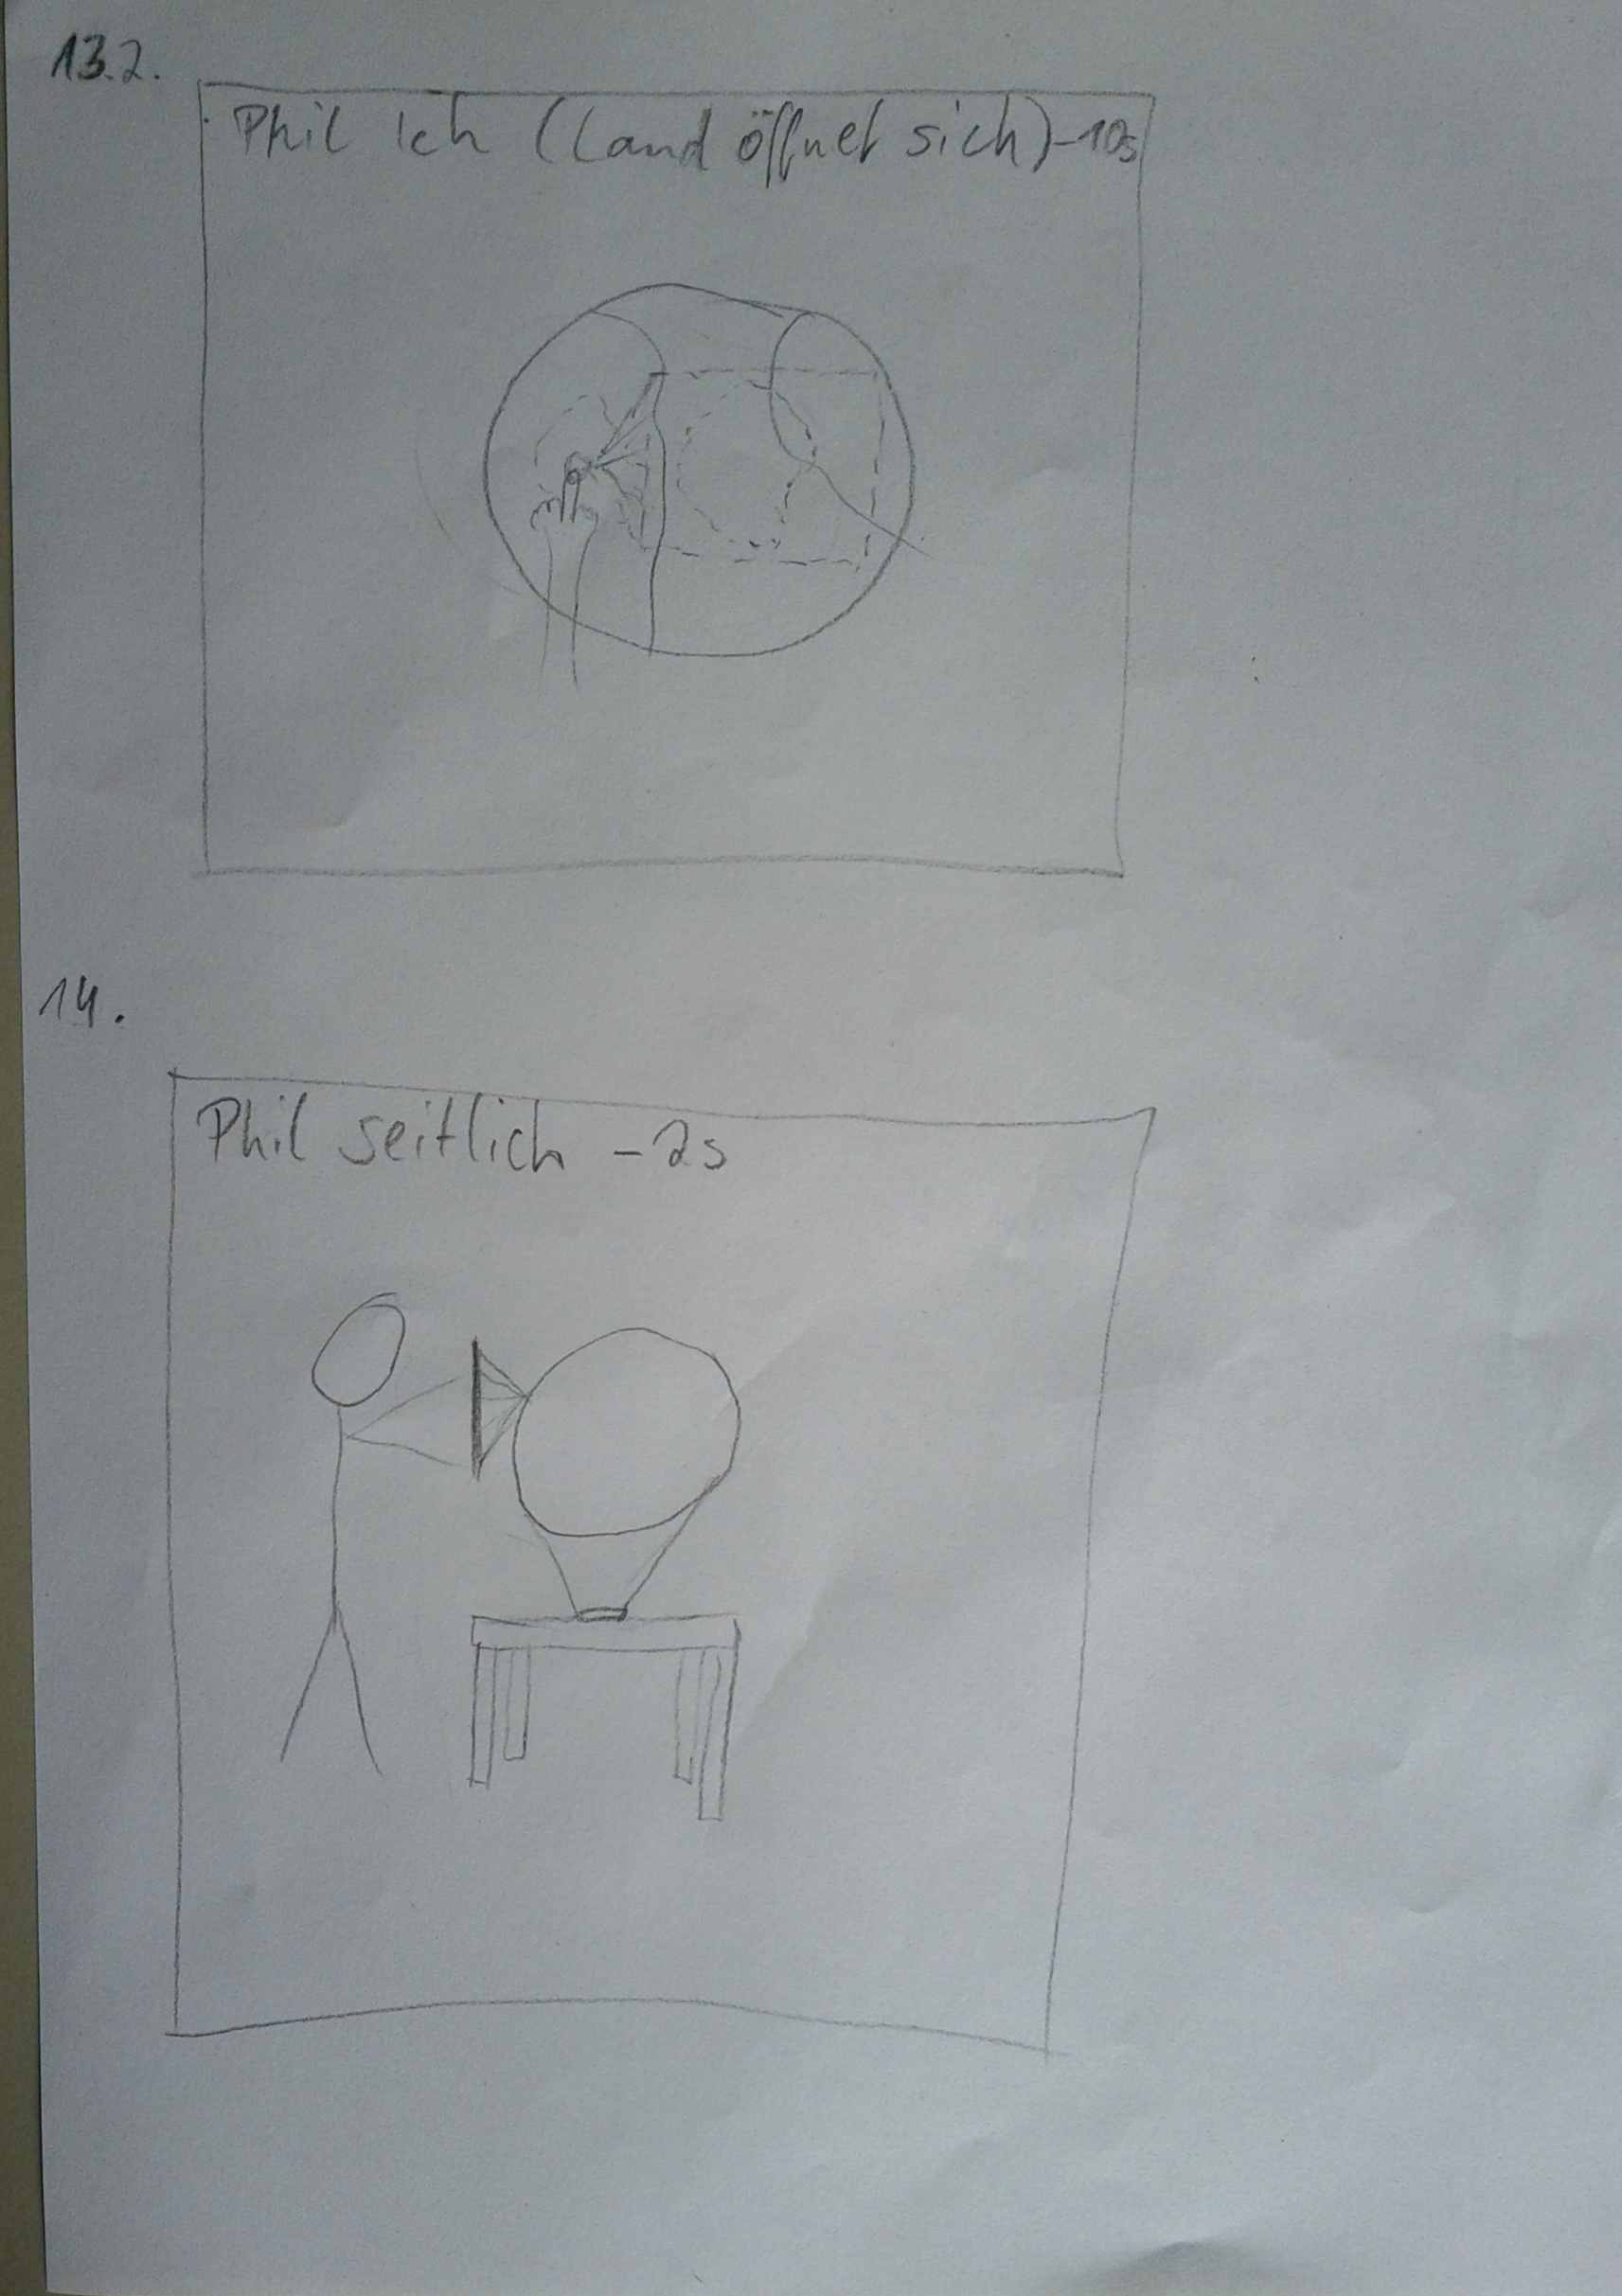 13.2.
Phil Ich (Land öffnet sich)-10s
14.
Phil seitlich -2s